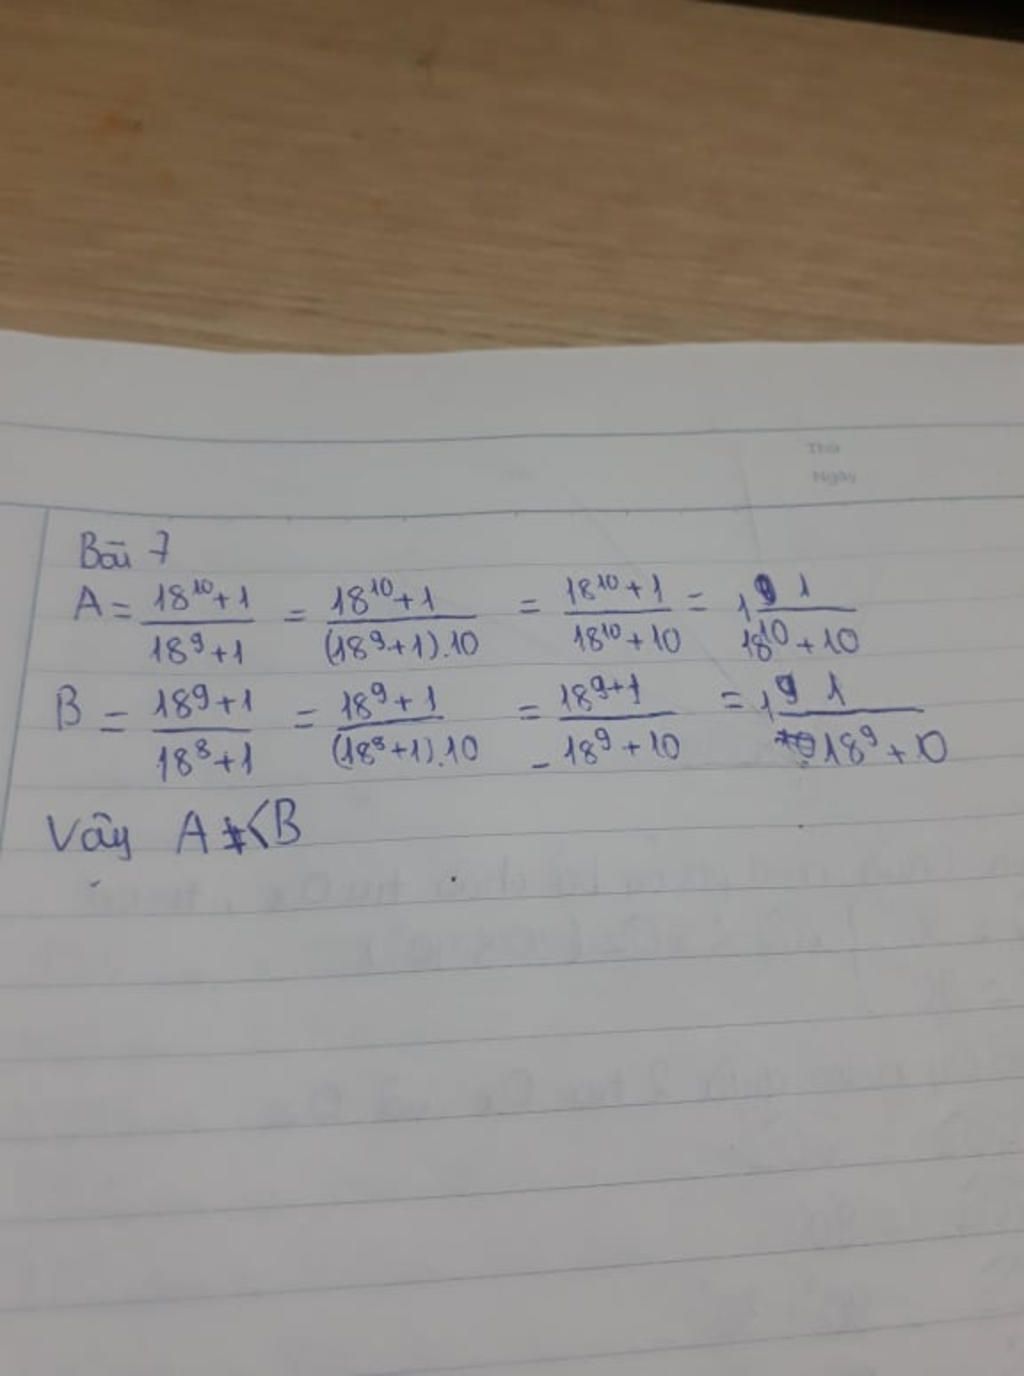 Thứ
Ngày
Bài 7
A = \frac{18^{10}+1}{18^9+1} = \frac{18^{10}+1}{(18^9+1).10} = \frac{18^{10}+1}{18^{10}+10} = 1\frac{1}{18^{10}+10}
B = \frac{18^9+1}{18^8+1} = \frac{18^9+1}{(18^8+1).10} = \frac{18^9+1}{18^9+10} = 1\frac{1}{18^9+10}
Vậy A < B